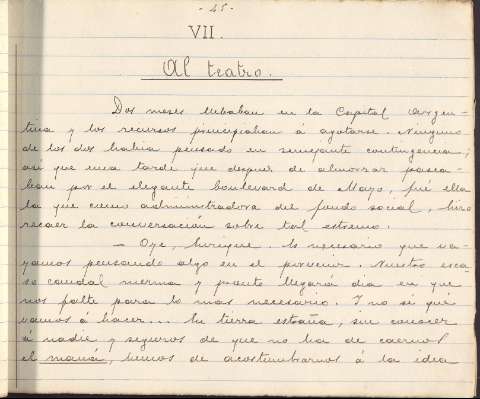 - 45 -
VII.
Al teatro.
Dos meses llebaban en la Capital Argen-
tina y los recursos principiaban á agotarse. Ninguno
de los dos habia pensado en semejante contingencia;
asi que una tarde que despues de almorzar pasea-
ban por el elegante boulevard de Mayo, fué ella
la que como administradora del fondo social, hizo
recaer la conversación sobre tal estremo.
— Oye, Enrique. Es necesario que va-
yamos pensando algo en el porvenir. Nuestro esca-
so caudal merma y pronto llegará dia en que
nos falte para lo mas necesario. Y no sé que
vamos á hacer... En tierra estraña, sin conocer
á nadie y seguros de que no ha de caernos
el maná, hemos de acostumbrarnos á la idea